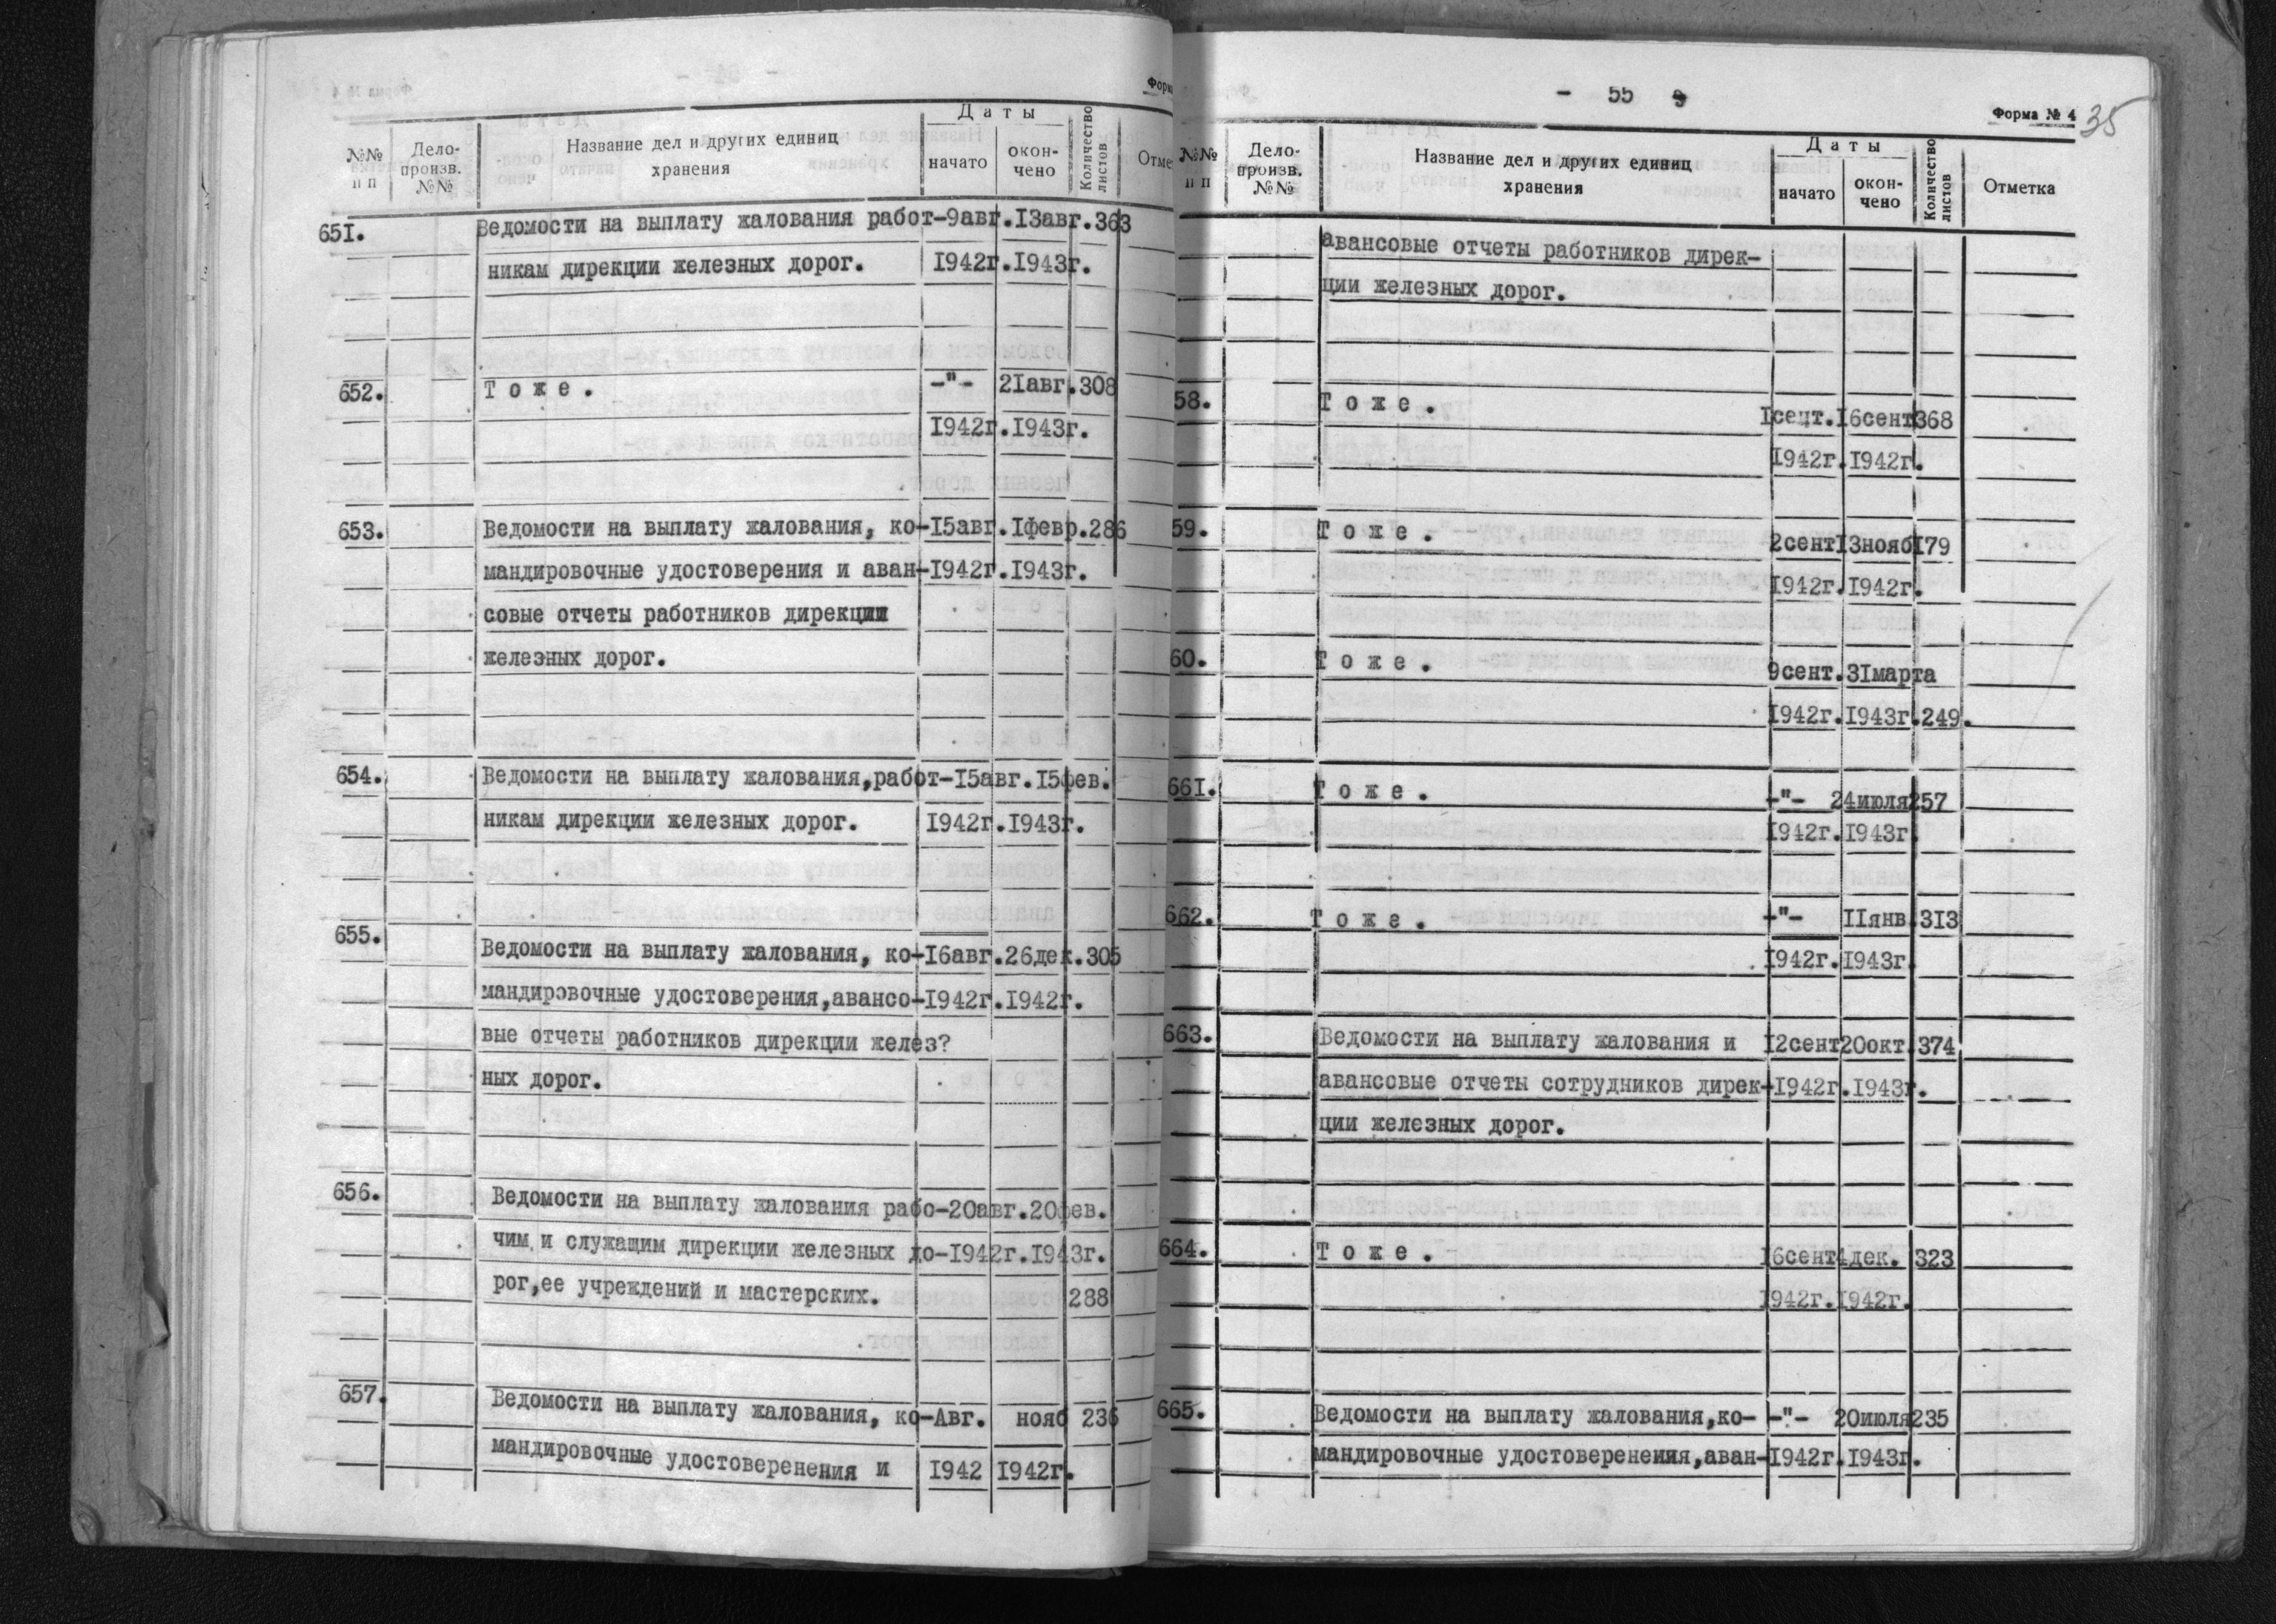 Даты
№№ п п
Дело-произв. №№
Название дел и других единиц
хранения
начато
окон-чено
Количество листов
651. Ведомости на выплату жалования работ-9авг.13авг.363
никам дирекции железных дорог. 1942г.1943г.
652. Тоже. -"- 21авг.308
1942г.1943г.
653. Ведомости на выплату жалования, ко-15авг.1февр.286
мандировочные удостоверения и аван-1942г.1943г.
совые отчеты работников дирекции
железных дорог.
654. Ведомости на выплату жалования,работ-15авг.15фев.
никам дирекции железных дорог. 1942г.1943г.
655. Ведомости на выплату жалования, ко-16авг.26дек.305
мандировочные удостоверения,авансо-1942г.1942г.
вые отчеты работников дирекции желез?
ных дорог.
656. Ведомости на выплату жалования рабо-20авг.20фев.
чим и служащим дирекции железных до-1942г.1943г.
рог,ее учреждений и мастерских. 288
657. Ведомости на выплату жалования, ко-Авг. нояб 236
мандировочные удостоверенения и 1942 1942г.
- 55 -
Форма № 4 35
№№ п п
Дело-произв. №№
Название дел и других единиц
хранения
Даты
начато
окон-чено
Количество листов
Отметка
авансовые отчеты работников дирек-
ции железных дорог.
58. Тоже. 1сент.16сент368
1942г.1942г.
59. Тоже. 2сент13нояб179
1942г.1942г.
60. Тоже. 9сент.31марта
1942г.1943г.249.
661. Тоже. -"- 24июля257
1942г.1943г
662. Тоже. -"- 11янв.313
1942г.1943г.
663. Ведомости на выплату жалования и 12сент20окт.374
авансовые отчеты сотрудников дирек-1942г.1943г.
ции железных дорог.
664. Тоже. 16сент4дек. 323
1942г.1942г.
665. Ведомости на выплату жалования,ко- -"- 20июля235
мандировочные удостоверенения,аван-1942г.1943г.